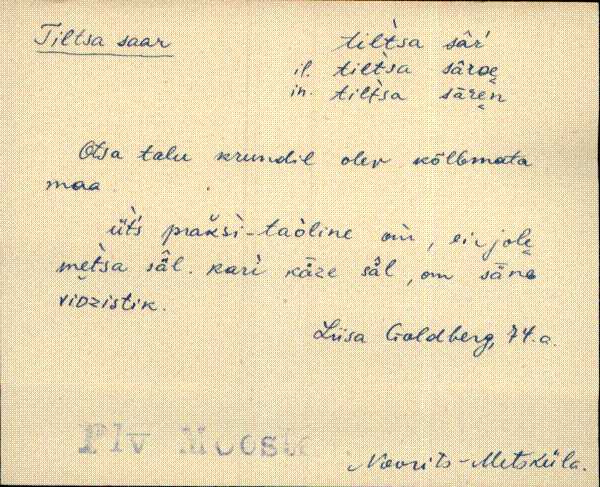 Tiltsa saar
tilt̀sa sār̀
il. tilt̀sa sārɒe̬
in. tilt̀sa sāre̬n
Otsa talu krundil olev kõlbmata
maa.
üt̀s praksì-taòline om̀, ei‿jole̬
met̀sa säl. kaŕi käze säl, om säne
vidzistik.
Liisa Goldberg, 74.a.
Plv Mooste
Noorits-Metsküla.